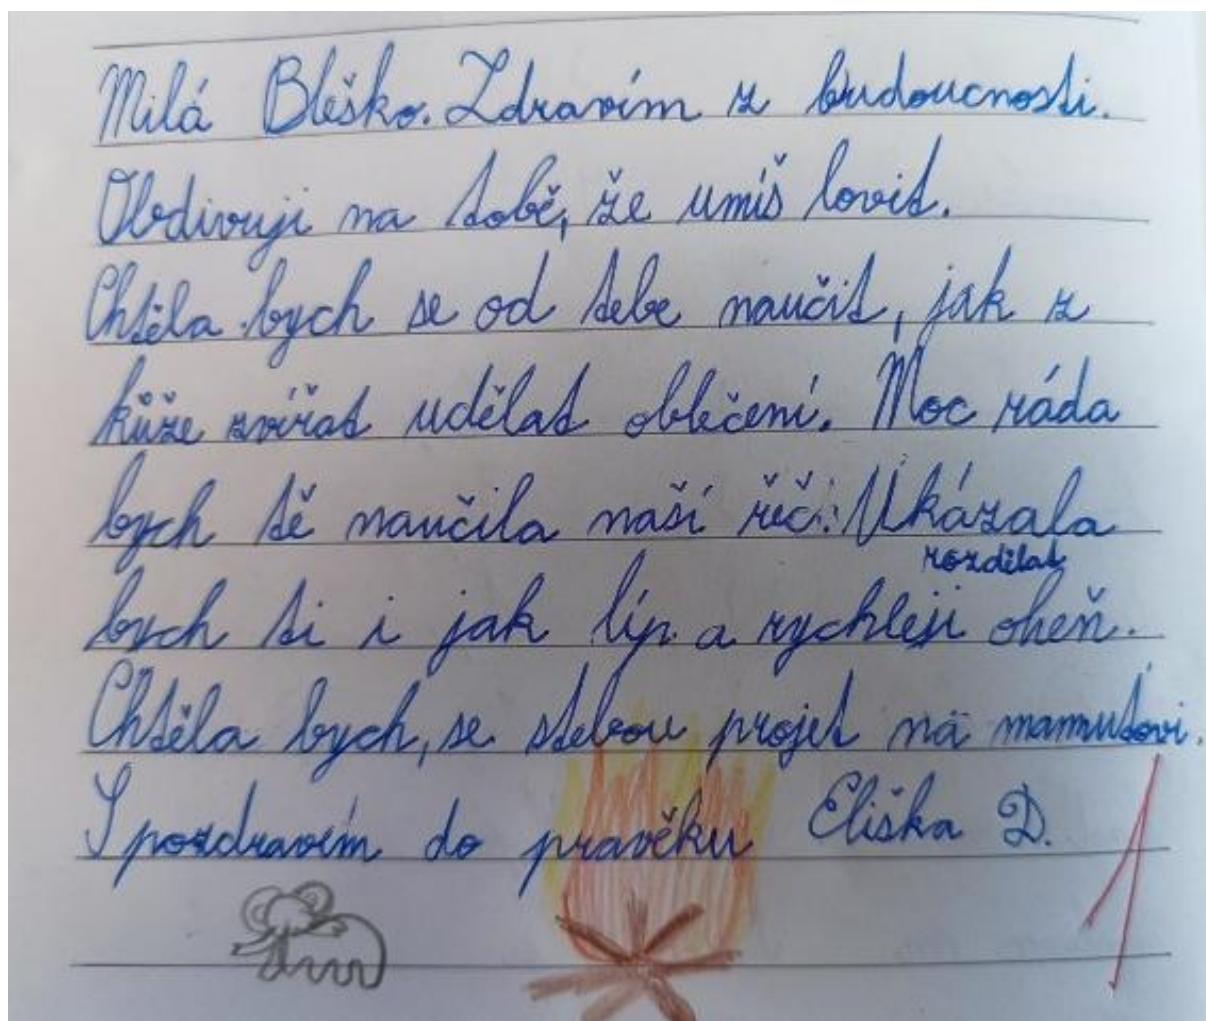 Milá Bleško. Zdravím z budoucnosti.
Obdivuji na tobě, že umíš lovit.
Chtěla bych se od tebe naučit, jak z
kůže zvířat udělat oblečení. Moc ráda
bych tě naučila naší řeči. Ukázala
rozdělat
bych ti i jak líp a rychleji oheň.
Chtěla bych, se stebou projet na mamutovi.
S pozdravím do pravěku Eliška D.
1